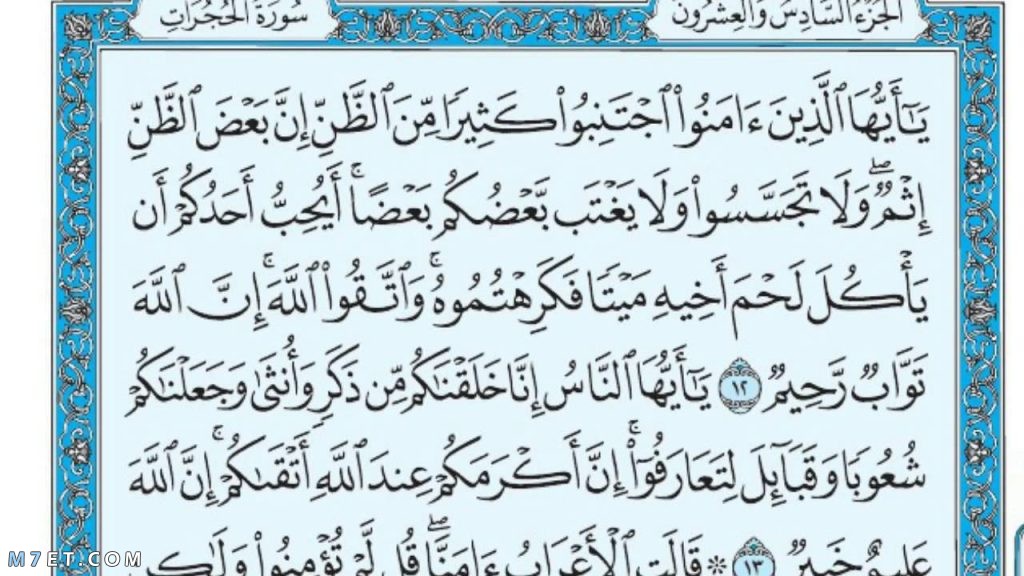 الجزء السادس والعشرون
سورة الحجرات
يَـٰٓأَيُّهَا ٱلَّذِينَ ءَامَنُوا۟ ٱجْتَنِبُوا۟ كَثِيرًا مِّنَ ٱلظَّنِّ إِنَّ بَعْضَ ٱلظَّنِّ
إِثْمٌ ۖ وَلَا تَجَسَّسُوا۟ وَلَا يَغْتَب بَّعْضُكُم بَعْضًا ۚ أَيُحِبُّ أَحَدُكُمْ أَن
يَأْكُلَ لَحْمَ أَخِيهِ مَيْتًا فَكَرِهْتُمُوهُ ۚ وَٱتَّقُوا۟ ٱللَّهَ ۚ إِنَّ ٱللَّهَ
تَوَّابٌ رَّحِيمٌ ١٢ يَـٰٓأَيُّهَا ٱلنَّاسُ إِنَّا خَلَقْنَـٰكُم مِّن ذَكَرٍ وَأُنثَىٰ وَجَعَلْنَـٰكُمْ
شُعُوبًا وَقَبَآئِلَ لِتَعَارَفُوٓا۟ ۚ إِنَّ أَكْرَمَكُمْ عِندَ ٱللَّهِ أَتْقَىٰكُمْ ۚ إِنَّ ٱللَّهَ
عَلِيمٌ خَبِيرٌ ١٣ ۞ قَالَتِ ٱلْأَعْرَابُ ءَامَنَّا ۖ قُل لَّمْ تُؤْمِنُوا۟ وَلَـٰكِن
M7ET.COM